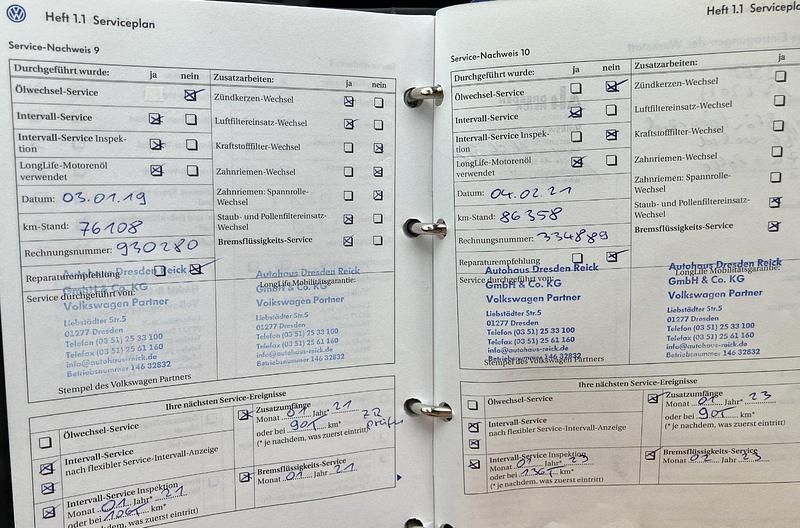 Heft 1.1 Serviceplan
Service-Nachweis 9
Durchgeführt wurde: ja nein
Ölwechsel-Service
Intervall-Service
Intervall-Service Inspek-
tion
LongLife-Motorenöl
verwendet
Datum: 03.01.19
km-Stand: 76108
Rechnungsnummer: 930280
Reparaturempfehlung
Service durchgeführt von:
Autohaus Dresden Reick
GmbH & Co. KG
Volkswagen Partner
Liebstädter Str.5
01277 Dresden
Telefon (03 51) 25 33 100
Telefax (03 51) 25 61 160
info@autohaus-reick.de
Betriebsnummer 146 32832
Stempel des Volkswagen Partners
Zusatzarbeiten: ja nein
Zündkerzen-Wechsel
Luftfiltereinsatz-Wechsel
Kraftstofffilter-Wechsel
Zahnriemen-Wechsel
Zahnriemen: Spannrolle-
Wechsel
Staub- und Pollenfiltereinsatz-
Wechsel
Bremsflüssigkeits-Service
LongLife Mobilitätsgarantie:
Autohaus Dresden Reick
GmbH & Co. KG
Volkswagen Partner
Liebstädter Str.5
01277 Dresden
Telefon (03 51) 25 33 100
Telefax (03 51) 25 61 160
info@autohaus-reick.de
Betriebsnummer 146 32832
Ihre nächsten Service-Ereignisse
Ölwechsel-Service
Intervall-Service
nach flexibler Service-Intervall-Anzeige
Intervall-Service Inspektion
Monat 01 Jahr* 21
oder bei 106T km*
(* je nachdem, was zuerst eintritt)
Zusatzumfänge
Monat 01 Jahr* 21
oder bei 90T km*
(* je nachdem, was zuerst eintritt)
ZR
prüfen
Bremsflüssigkeits-Service
Monat 01 Jahr 21
Heft 1.1 Serviceplan
Service-Nachweis 10
Durchgeführt wurde: ja nein
Ölwechsel-Service
Intervall-Service
Intervall-Service Inspek-
tion
LongLife-Motorenöl
verwendet
Datum: 04.02.21
km-Stand: 86358
Rechnungsnummer: 334889
Reparaturempfehlung
Service durchgeführt von:
Autohaus Dresden Reick
GmbH & Co. KG
Volkswagen Partner
Liebstädter Str.5
01277 Dresden
Telefon (03 51) 25 33 100
Telefax (03 51) 25 61 160
info@autohaus-reick.de
Betriebsnummer 146 32832
Stempel des Volkswagen Partners
Zusatzarbeiten: ja
Zündkerzen-Wechsel
Luftfiltereinsatz-Wechsel
Kraftstofffilter-Wechsel
Zahnriemen-Wechsel
Zahnriemen: Spannrolle-
Wechsel
Staub- und Pollenfiltereinsatz-
Wechsel
Bremsflüssigkeits-Service
LongLife Mobilitätsgarantie:
Autohaus Dresden Reick
GmbH & Co. KG
Volkswagen Partner
Liebstädter Str.5
01277 Dresden
Telefon (03 51) 25 33 100
Telefax (03 51) 25 61 160
info@autohaus-reick.de
Betriebsnummer 146 32832
Ihre nächsten Service-Ereignisse
Ölwechsel-Service
Intervall-Service
nach flexibler Service-Intervall-Anzeige
Intervall-Service Inspektion
Monat 01 Jahr* 23
oder bei 136T km*
(* je nachdem, was zuerst eintritt)
Zusatzumfänge
Monat 01 Jahr* 23
oder bei 90T km*
(* je nachdem, was zuerst eintritt)
Bremsflüssigkeits-Service
Monat 02 Jahr 23